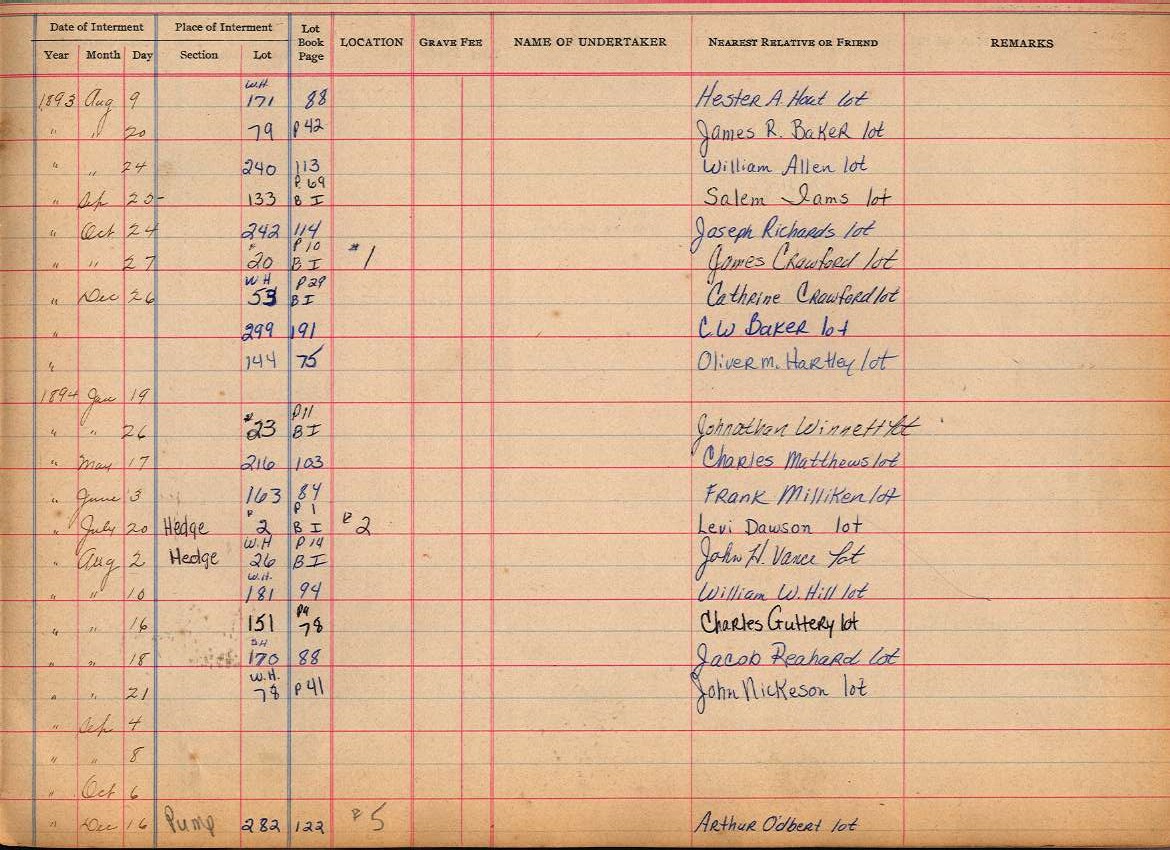 Date of Interment Place of Interment Lot Book Page LOCATION GRAVE FEE NAME OF UNDERTAKER NEAREST RELATIVE OR FRIEND REMARKS
Year Month Day Section Lot
W.H.
1893 Aug 9 171 88 Hester A. Hout lot
" " 20 79 P 42 James R. Baker lot
" " 24 240 113 William Allen lot
P. 69
" Sep 25- 133 B I Salem Iams lot
" Oct 24 242 114 Joseph Richards lot
P 10
" " 27 20 B I #1 James Crawford lot
W H P 29
" Dec 26 53 B I Cathrine Crawford lot
" 299 191 C W Baker lot
" 144 75 Oliver M. Hartley lot
1894 Jan 19
P 11
" " 26 #23 B I Johnathan Winnett lot
" May 17 216 103 Charles Matthews lot
" June 3 163 84 Frank Milliken lot
P 1
" July 20 Hedge 2 B I #2 Levi Dawson lot
W. H P 14
" Aug 2 Hedge 26 B I John H. Vance lot
W. H.
" " 10 181 94 William W. Hill lot
Pg
" " 16 151 78 Charles Guttery lot
" " 18 170 88 Jacob Reahard lot
W. H.
" " 21 78 P 41 John Nickeson lot
" Sep 4
" " 8
" Oct 6
" Dec 16 Pump 282 122 #5 Arthur O'dbert lot